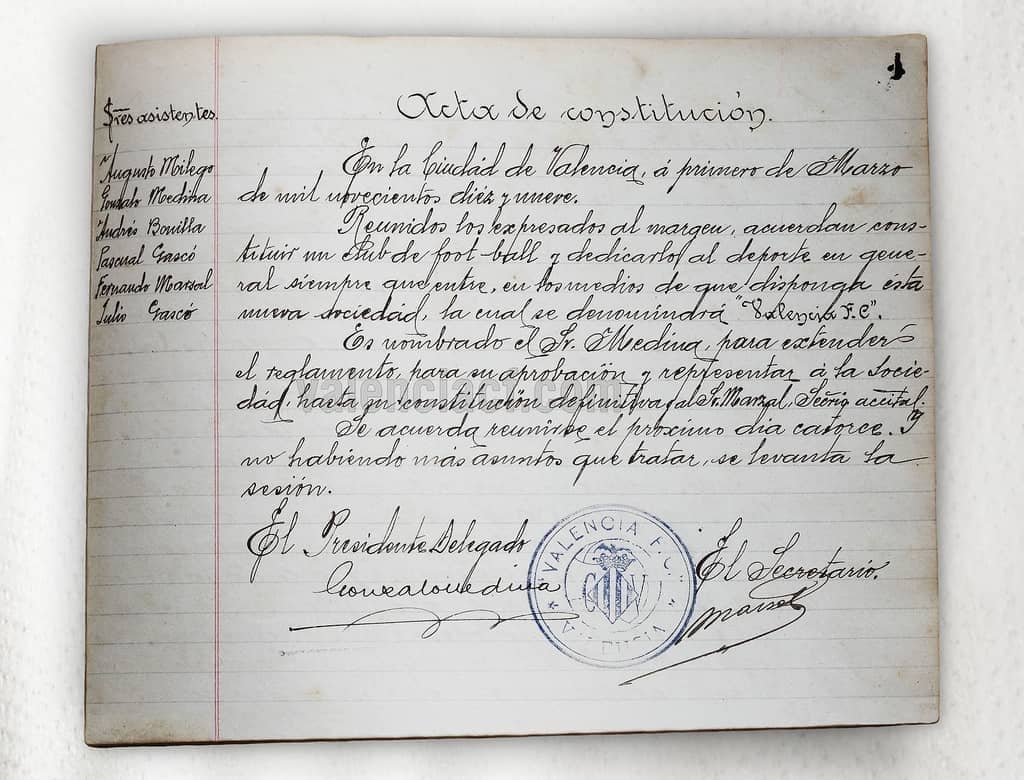 1
Sres asistentes
Augusto Milego
Gonzalo Medina
Andrés Bonilla
Pascual Gascó
Fernando Marsal
Julio Gascó
Acta de constitución.
En la Ciudad de Valencia, á primero de Marzo
de mil novecientos diéz y nueve.
Reunidos los expresados al margen, acuerdan cons-
tituir un Club de foot-ball y dedicarlo al deporte en gene-
ral siempre que entre, en los medios de que disponga esta
nueva sociedad, la cual se denominará "Valencia F.C".
Es nombrado el Sr. Medina, para extender
el reglamento, para su aprobación y representar á la Socie-
dad, hasta su constitución definitiva y al Sr. Marzal, Secrio accital.
Se acuerda reunirse el próximo dia catorce. Y
no habiendo más asuntos que tratar, se levanta la
sesión.
El Presidente Delegado
Gonzalo Medina
El Secretario.
Marsal
"VALENCIA F. C."
valenciacf.com